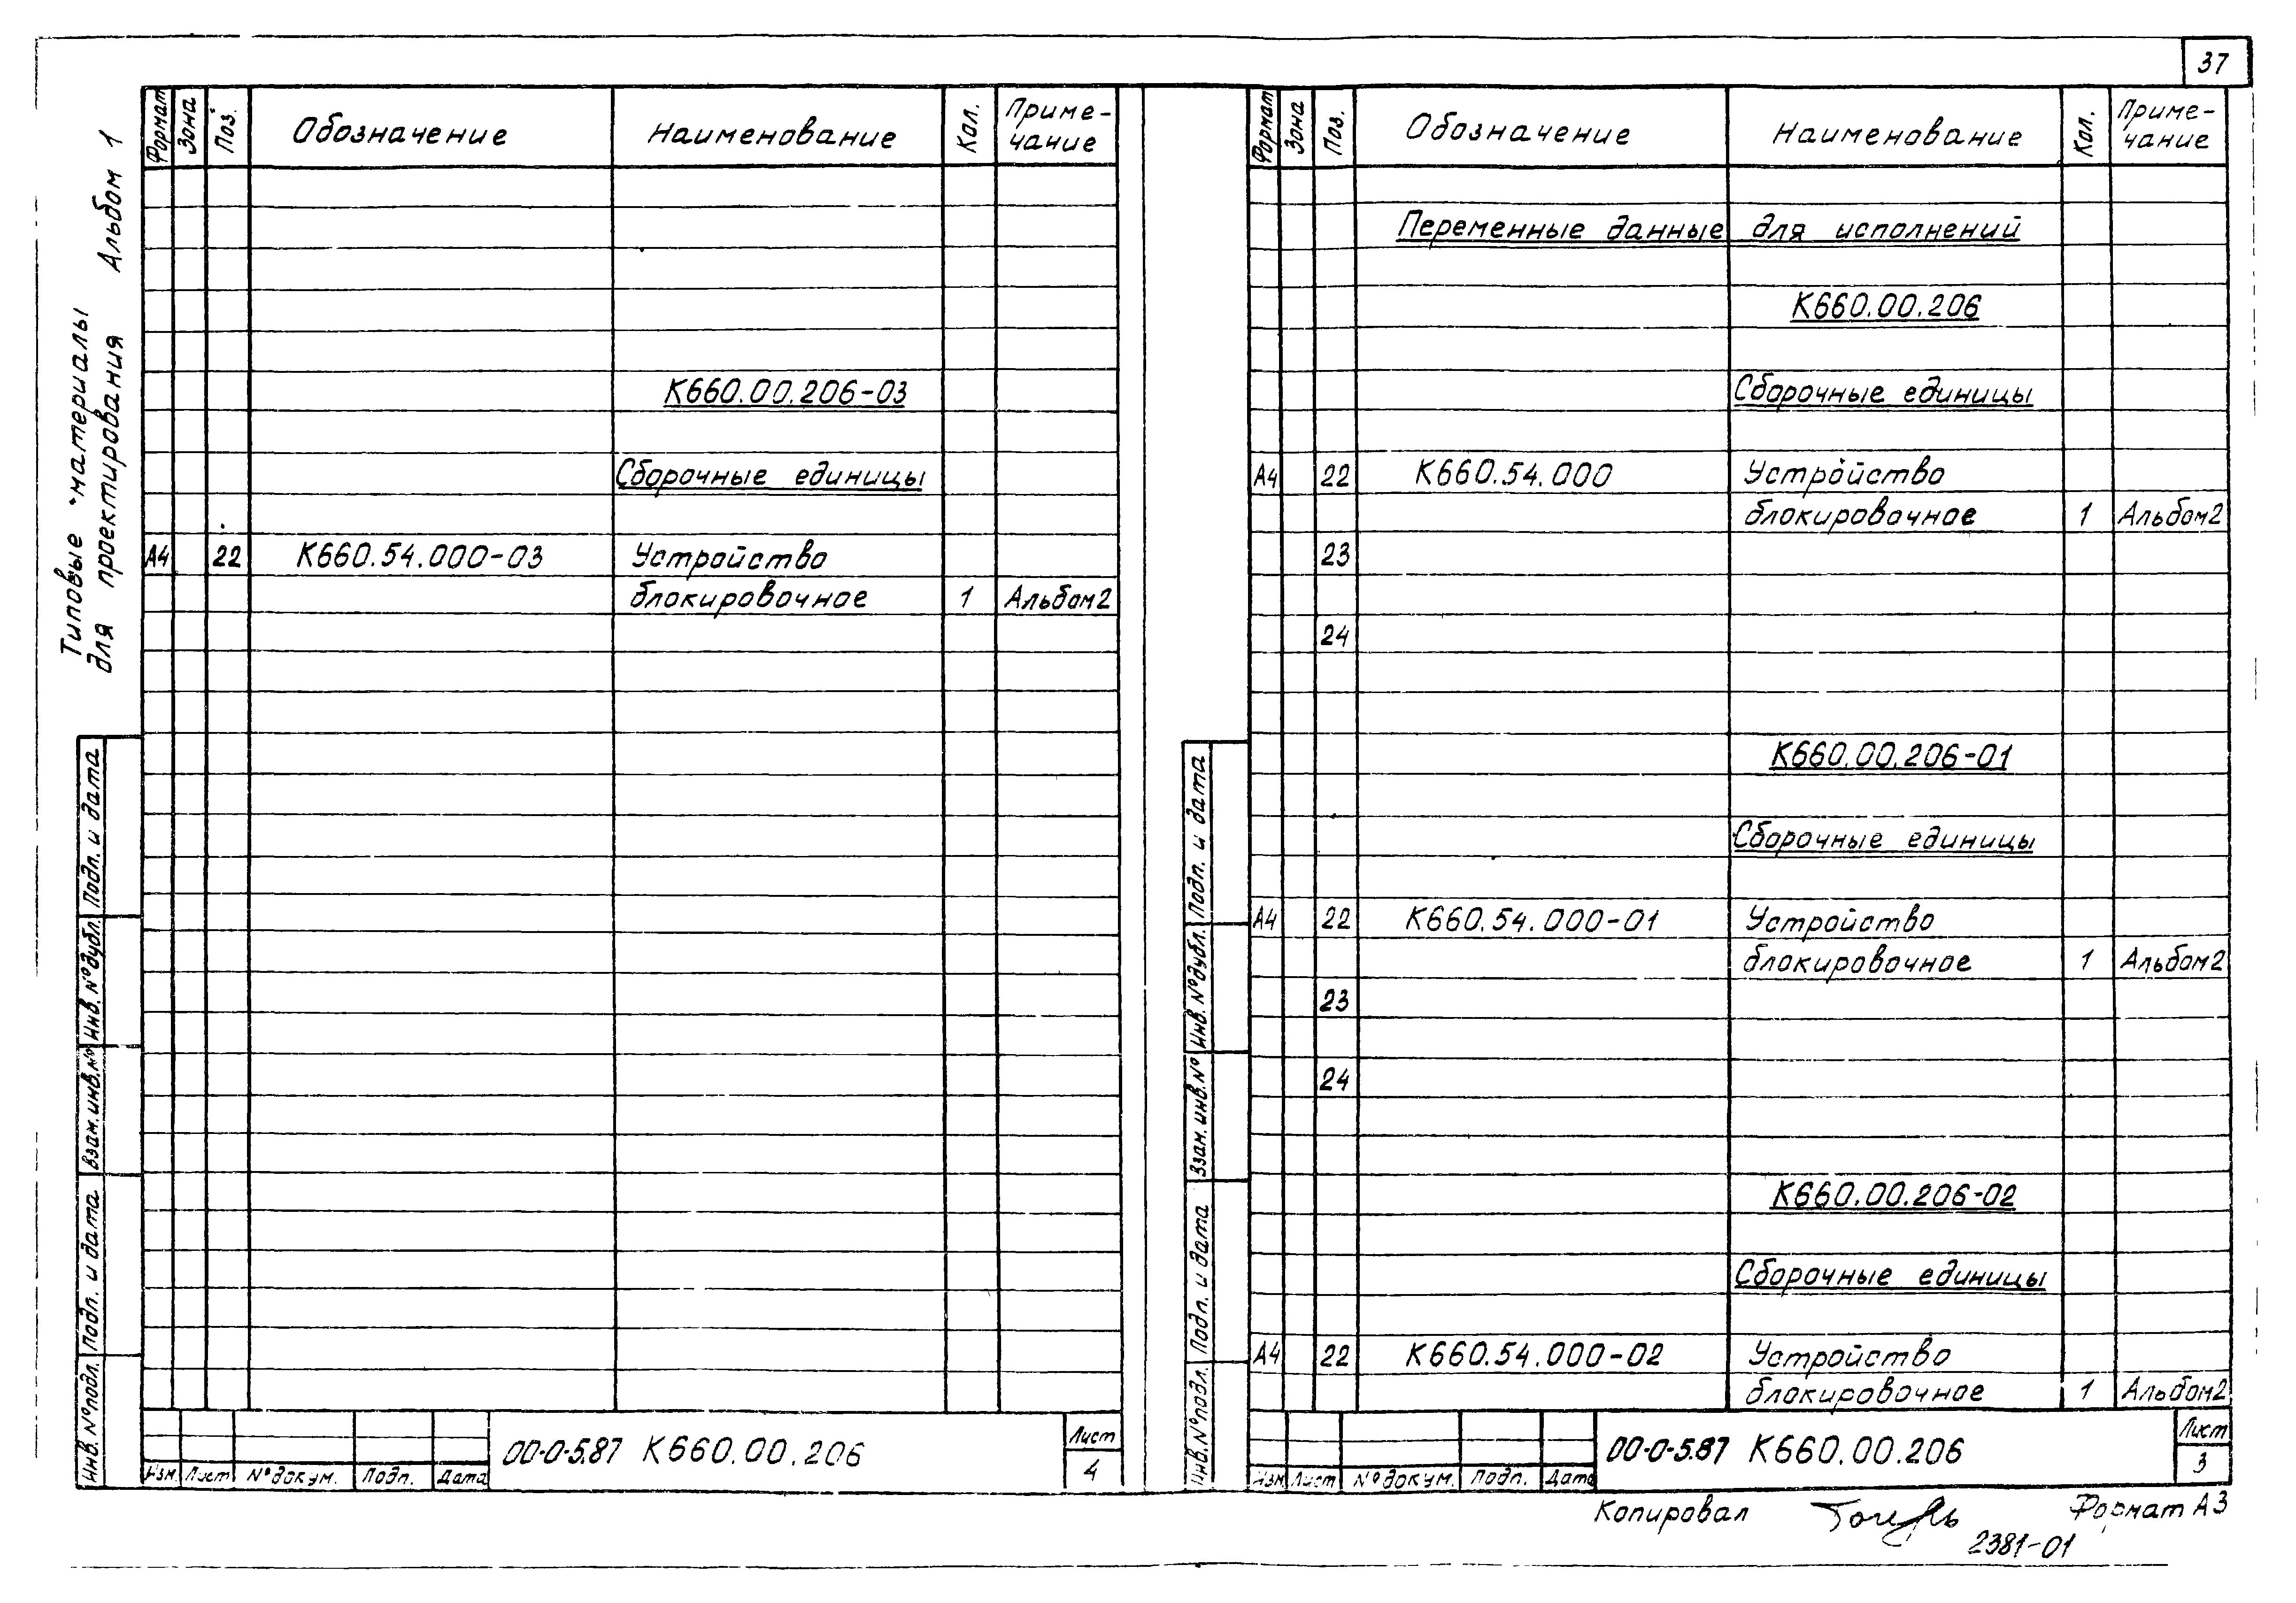 37
Типовые материалы
для проектирования Альбом 1
Формат Зона Поз. Обозначение Наименование Кол. Приме-
чание
К660.00.206-03
Сборочные единицы
А4 22 К660.54.000-03 Устройство
блокировочное 1 Альбом2
Подп. и дата
Инв. №дубл.
Взам. инв. №
Подп. и дата
Инв. №подл.
Изм Лист №докум. Подп. Дата
00-0-5.87 К660.00.206
Лист
4
Формат Зона Поз. Обозначение Наименование Кол. Приме-
чание
Переменные данные для исполнений
К660.00.206
Сборочные единицы
А4 22 К660.54.000 Устройство
блокировочное 1 Альбом2
23
24
К660.00.206-01
Сборочные единицы
А4 22 К660.54.000-01 Устройство
блокировочное 1 Альбом2
23
24
К660.00.206-02
Сборочные единицы
А4 22 К660.54.000-02 Устройство
блокировочное 1 Альбом2
Подп. и дата
Инв. №дубл.
Взам. инв. №
Подп. и дата
Инв. №подл.
Изм Лист №докум. Подп. Дата
00-0-5.87 К660.00.206
Лист
3
Копировал Формат А3
2381-01